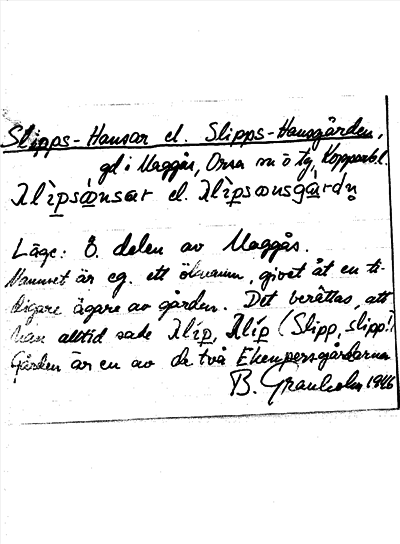 Slipps-Hansar el. Slipps-Hansgården,
gd i Maggås, Orsa sn o tg, Kopparb.l.
Läge: Ö. delen av Maggås.
Namnet är eg. ett öknamn, givet åt en ti-
digare ägare av gården. Det berättas, att
han alltid sade (Slipp, slipp!)
Gården är en av de två Ekenpersgårdarna
B. Granholm 1946